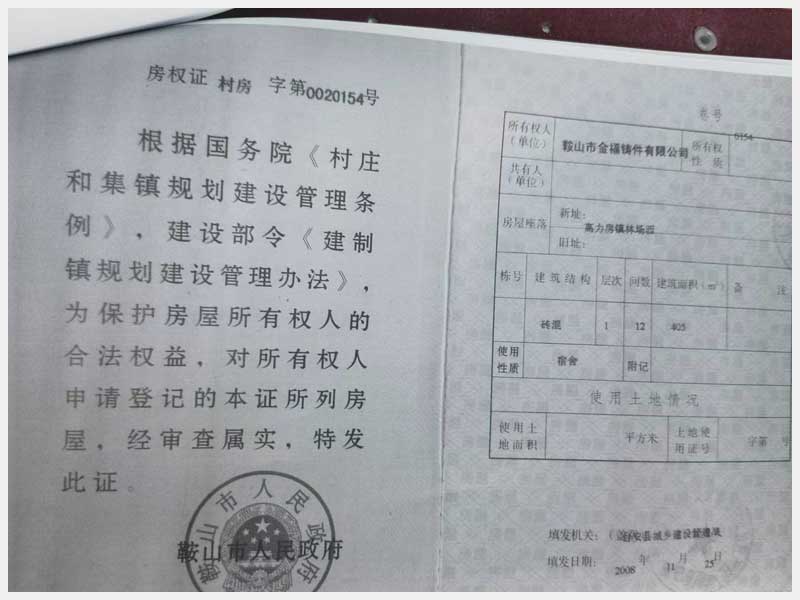 房权证 村房 字第0020154号
根据国务院《村庄
和集镇规划建设管理条
例》，建设部令《建制
镇规划建设管理办法》，
为保护房屋所有权人的
合法权益，对所有权人
申请登记的本证所列房
屋，经审查属实，特发
此证。
鞍山市人民政府
鞍山市人民政府
卷号 0154
所有权人（单位） 鞍山市金福铸件有限公司 所有权性质
共有人（单位）
房屋座落 新址： 高力房镇林场西
旧址：
栋号 建筑结构 层次 间数 建筑面积（m²） 备注
砖混 1 12 405
使用性质 宿舍 附记
使用土地情况
使用土地面积 平方米 土地使用证号 字第 号
填发机关：（盖 安县城乡建设管理
填发日期： 2008 年 11 月 25 日